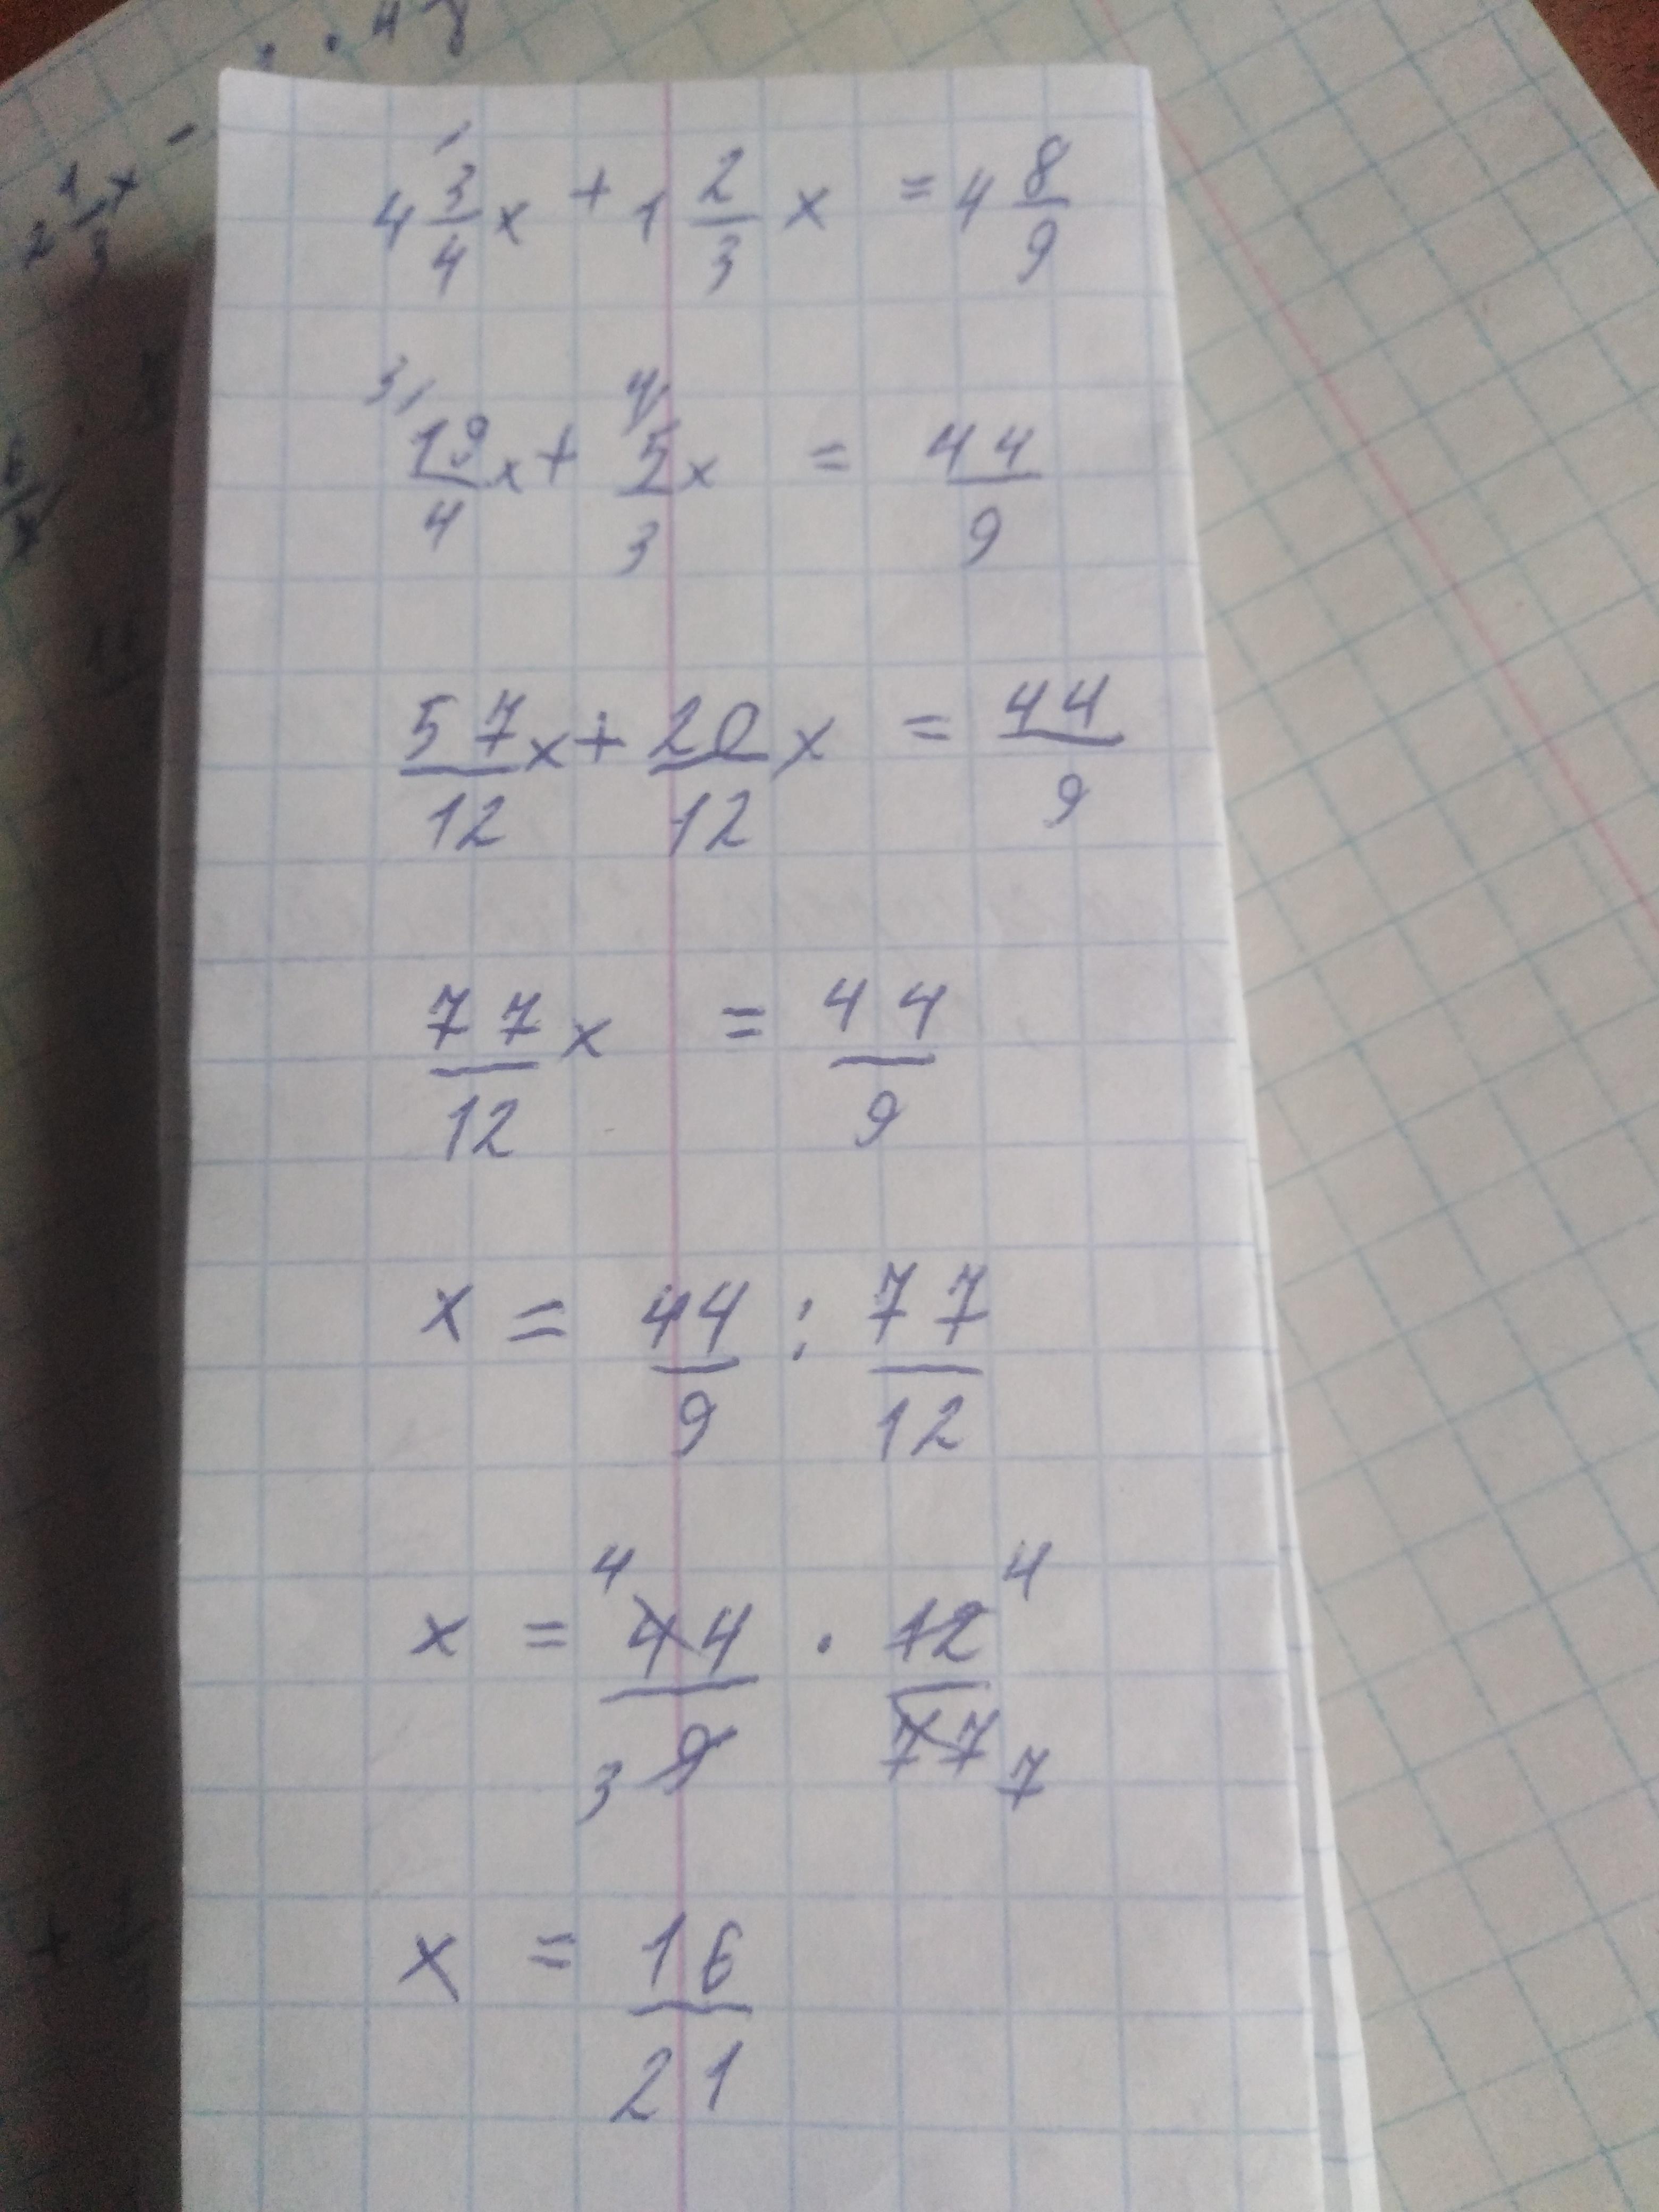 4 3/4 x + 1 2/3 x = 4 8/9
3/ 19/4 x + 4/ 5/3 x = 44/9
57/12 x + 20/12 x = 44/9
77/12 x = 44/9
x = 44/9 : 77/12
x = 4 44/9 3 · 12/77 4 7
x = 16/21